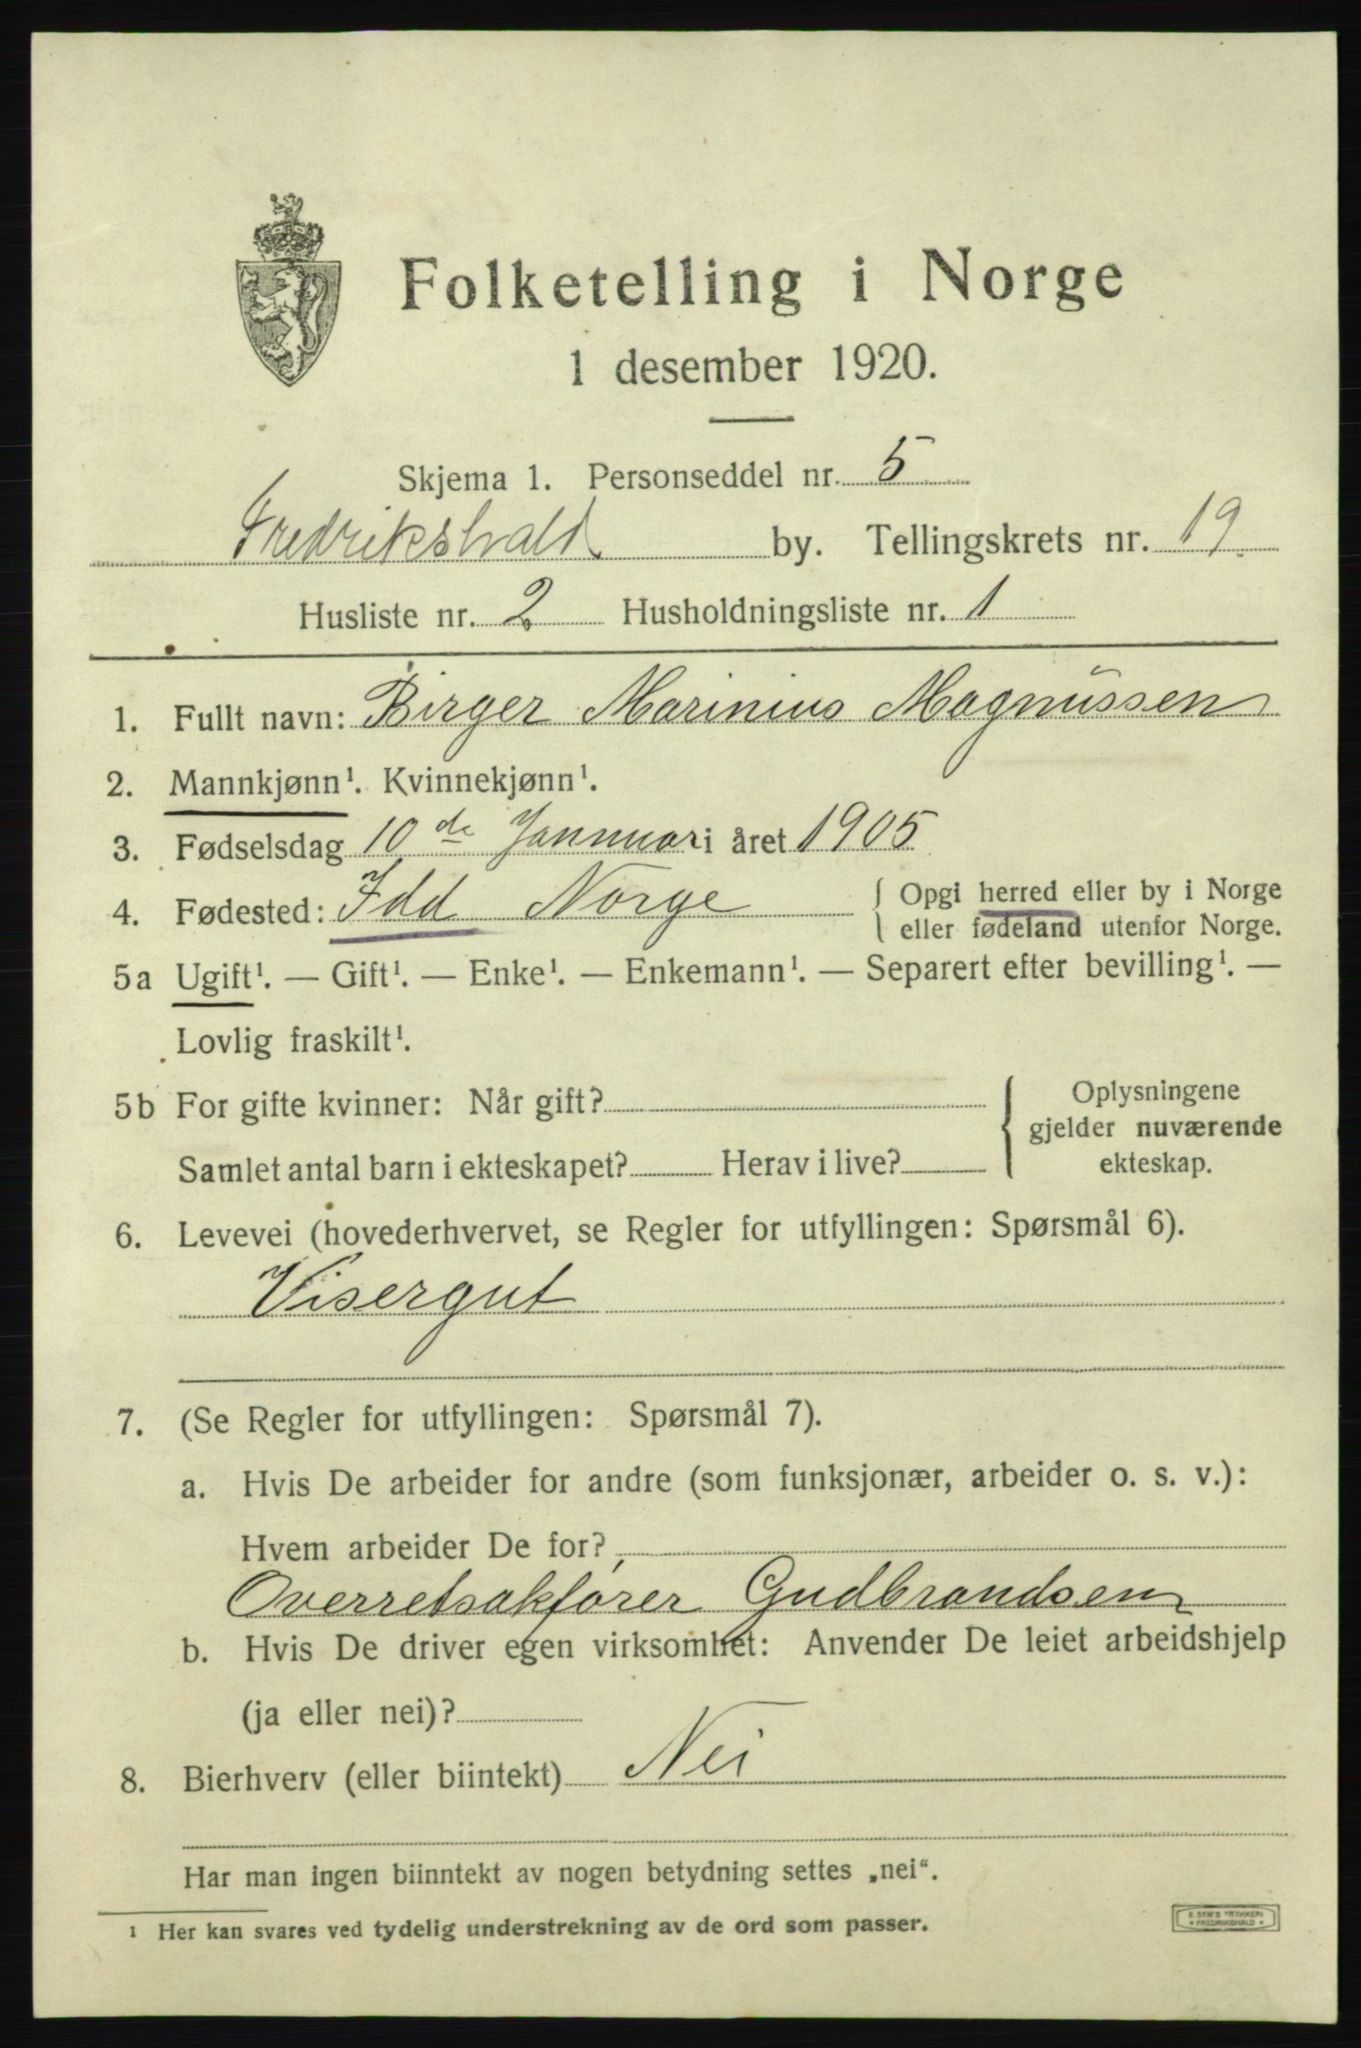 Folketelling i Norge
1 desember 1920.
Skjema 1. Personseddel nr. 5
Fredrikshald by. Tellingskrets nr. 19.
Husliste nr. 2 Husholdningsliste nr. 1
1. Fullt navn: Birger Marinius Magnussen
2. Mannkjønn¹. Kvinnekjønn¹.
3. Fødselsdag 10 de Januar i året 1905
4. Fødested: Idd Norge { Opgi herred eller by i Norge
eller fødeland utenfor Norge.
5a Ugift¹. — Gift¹. — Enke¹. — Enkemann¹. — Separert efter bevilling¹. —
Lovlig fraskilt¹.
5b For gifte kvinner: Når gift?
Samlet antal barn i ekteskapet? Herav i live?
{ Oplysningene
gjelder nuværende
ekteskap.
6. Levevei (hovederhvervet, se Regler for utfyllingen: Spørsmål 6).
Visergut
7. (Se Regler for utfyllingen: Spørsmål 7).
a. Hvis De arbeider for andre (som funksjonær, arbeider o. s. v.):
Hvem arbeider De for?
Overretsakfører Gudbrandsen
b. Hvis De driver egen virksomhet: Anvender De leiet arbeidshjelp
(ja eller nei)?
8. Bierhverv (eller biintekt) Nei
Har man ingen biinntekt av nogen betydning settes „nei“.
¹ Her kan svares ved tydelig understrekning av de ord som passer.
E. SEM'S TRYKKERI
• FREDRIKSHALD •